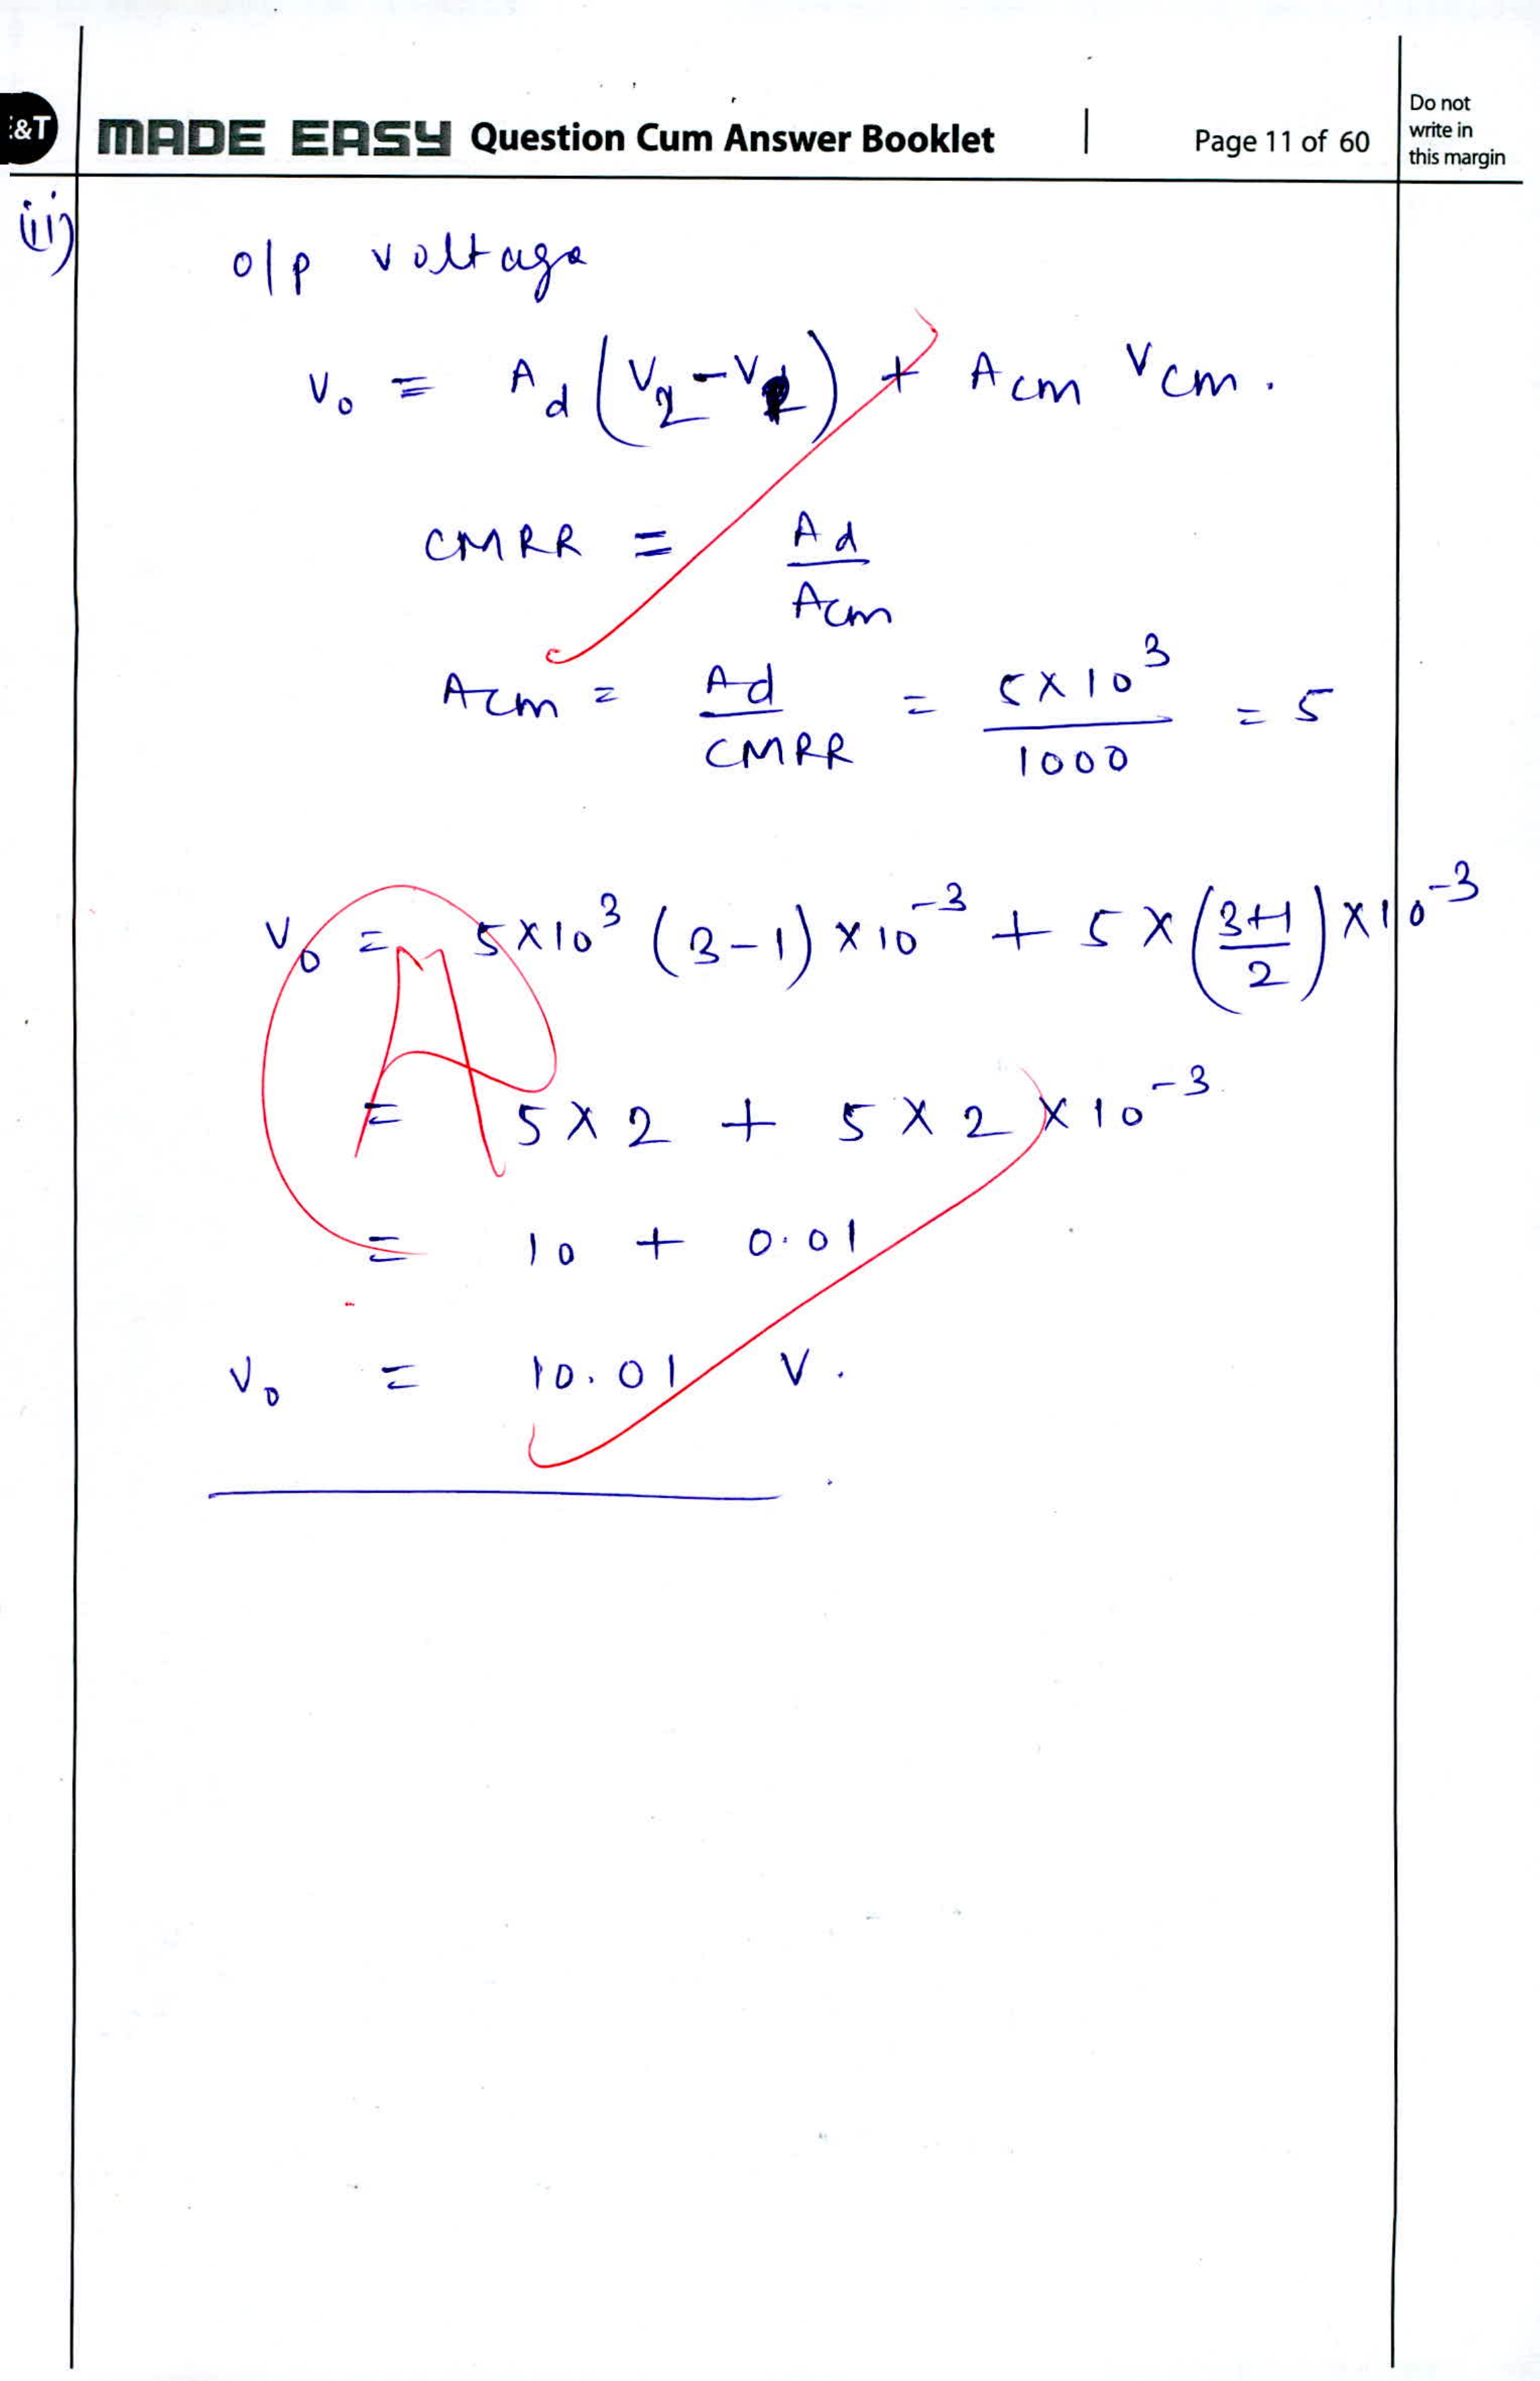 :&T MADE EASY Question Cum Answer Booklet | Page 11 of 60
Do not
write in
this margin
(ii)
o/p voltage
V₀ = A_d (V₂ - V₁) + A_cm V_cm.
CMRR = A_d / A_cm
A_cm = A_d / CMRR = 5×10³ / 1000 = 5
V₀ = 5×10³ (3-1) × 10⁻³ + 5 × ((3+1)/2) × 10⁻³
= 5 × 2 + 5 × 2 × 10⁻³
= 10 + 0.01
V₀ = 10.01 V.